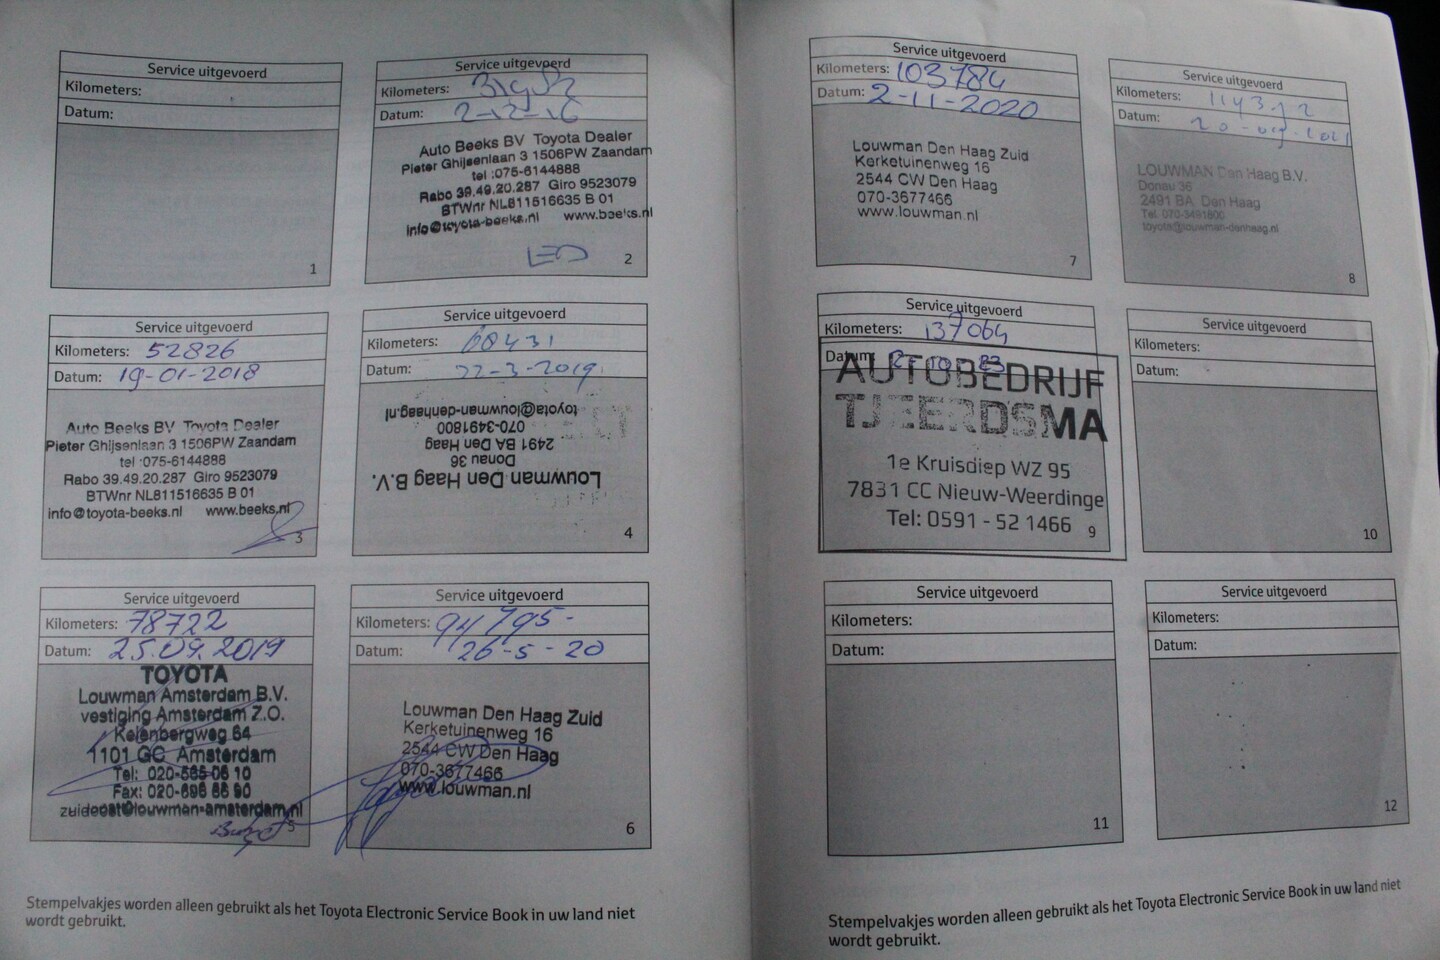 Service uitgevoerd
Kilometers:
Datum:
1
Service uitgevoerd
Kilometers:
Datum: 2-12-16
Auto Beeks BV Toyota Dealer
Pieter Ghijsenlaan 3 1506PW Zaandam
tel :075-6144888
Rabo 39.49.20.287 Giro 9523079
BTWnr NL811516635 B 01
info@toyota-beeks.nl www.beeks.nl
LED
2
Service uitgevoerd
Kilometers: 52826
Datum: 19-01-2018
Auto Beeks BV Toyota Dealer
Pieter Ghijsenlaan 3 1506PW Zaandam
tel :075-6144888
Rabo 39.49.20.287 Giro 9523079
BTWnr NL811516635 B 01
info@toyota-beeks.nl www.beeks.nl
3
Service uitgevoerd
Kilometers: 68431
Datum: 22-3-2019
Louwman Den Haag B.V.
Donau 36
2491 BA Den Haag
070-3491800
toyota@louwman-denhaag.nl
4
Service uitgevoerd
Kilometers: 78722
Datum: 25.09.2019
TOYOTA
Louwman Amsterdam B.V.
vestiging Amsterdam Z.O.
Keienbergweg 64
1101 GC Amsterdam
Tel: 020-565 06 10
Fax: 020-696 86 90
zuidoost@louwman-amsterdam.nl
5
Service uitgevoerd
Kilometers: 94795-
Datum: 26-5-20
Louwman Den Haag Zuid
Kerketuinenweg 16
2544 CW Den Haag
070-3677466
www.louwman.nl
6
Stempelvakjes worden alleen gebruikt als het Toyota Electronic Service Book in uw land niet
wordt gebruikt.
Service uitgevoerd
Kilometers: 103784
Datum: 2-11-2020
Louwman Den Haag Zuid
Kerketuinenweg 16
2544 CW Den Haag
070-3677466
www.louwman.nl
7
Service uitgevoerd
Kilometers:
Datum:
LOUWMAN Den Haag B.V.
Donau 36
2491 BA Den Haag
Tel. 070-3491800
toyota@louwman-denhaag.nl
8
Service uitgevoerd
Kilometers: 137064
Datum:
AUTOBEDRIJF
TJEERDSMA
1e Kruisdiep WZ 95
7831 CC Nieuw-Weerdinge
Tel: 0591 - 52 1466
9
Service uitgevoerd
Kilometers:
Datum:
10
Service uitgevoerd
Kilometers:
Datum:
11
Service uitgevoerd
Kilometers:
Datum:
12
Stempelvakjes worden alleen gebruikt als het Toyota Electronic Service Book in uw land niet
wordt gebruikt.